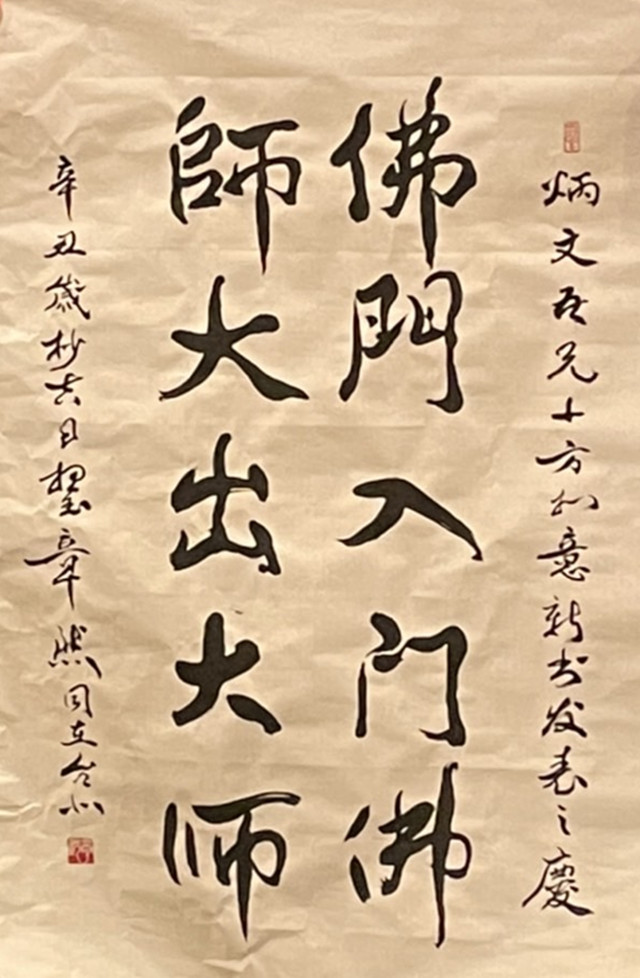 炳文吾兄十方如意新书发表之慶
佛門入门佛
師大出大师
辛丑歲杪吉日 章 同在台北